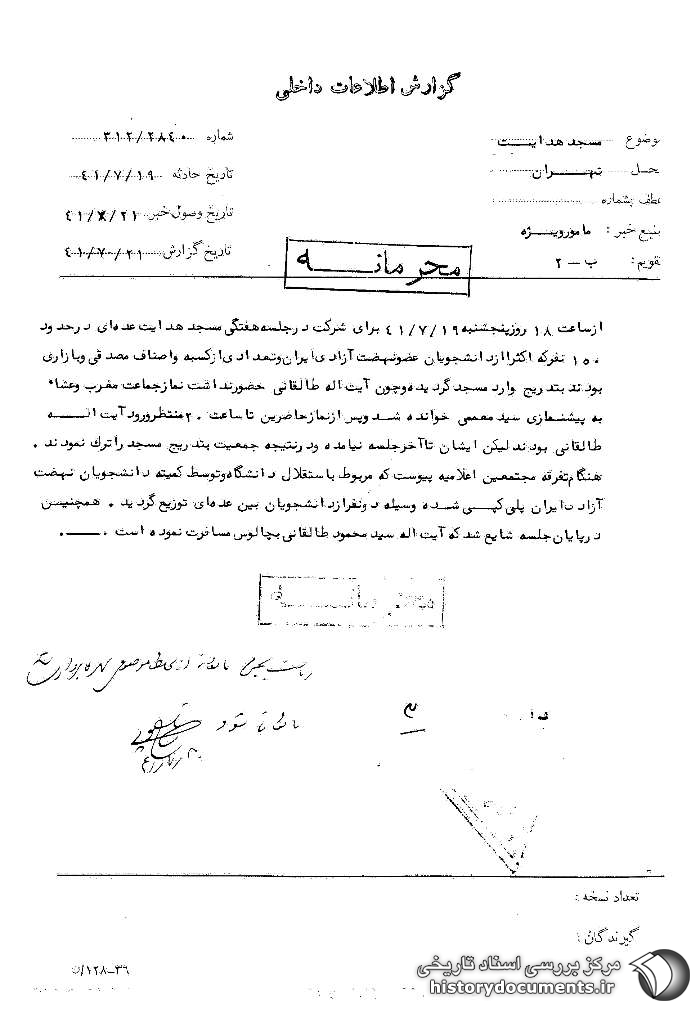 گزارش اطلاعات داخلی
موضوع مسجد هدایت
شماره ۳۱۲/۲۸۴۰
محل تهران
تاریخ حادثه ۴۱/۷/۱۹
عطف بشماره
تاریخ وصول خبر ۴۱/۷/۲۱
منبع خبر : مامور ویژه
تاریخ گزارش ۴۱/۷/۲۱
تقویم: ب - ۲
محرمانه
ازساعت ۱۸ روز پنجشنبه ۴۱/۷/۱۹ برای شرکت در جلسه هفتگی مسجد هدایت عده‌ای در حدود
۱۵۰ نفر که اکثرا از دانشجویان عضو نهضت آزادی ایران و تعدادی از کسبه و اصناف مصدقی و بازاری
بودند بتدریج وارد مسجد گردیده و چون آیت اله طالقانی حضور نداشت نماز جماعت مغرب و عشاء
به پیشنمازی سید معممی خوانده شد و پس از نماز حاضرین تا ساعت ۲۰ منتظر ورود آیت اله
طالقانی بودند لیکن ایشان تا آخر جلسه نیامده و در نتیجه جمعیت بتدریج مسجد را ترک نمودند .
هنگام تفرقه مجتمعین اعلامیه پیوست که مربوط باستقلال دانشگاه و توسط کمیته دانشجویان نهضت
آزادی ایران پلی کپی شده وسیله دو نفر از دانشجویان بین عده‌ای توزیع گردید . همچنین
در پایان جلسه شایع شد که آیت اله سید محمود طالقانی بچالوس مسافرت نموده است .
محرمانه
بایگانی شود
۳
تعداد نسخه :
گیرندگان :
۱۲۸-۳۶/
مرکز بررسی اسناد تاریخی
historydocuments.ir